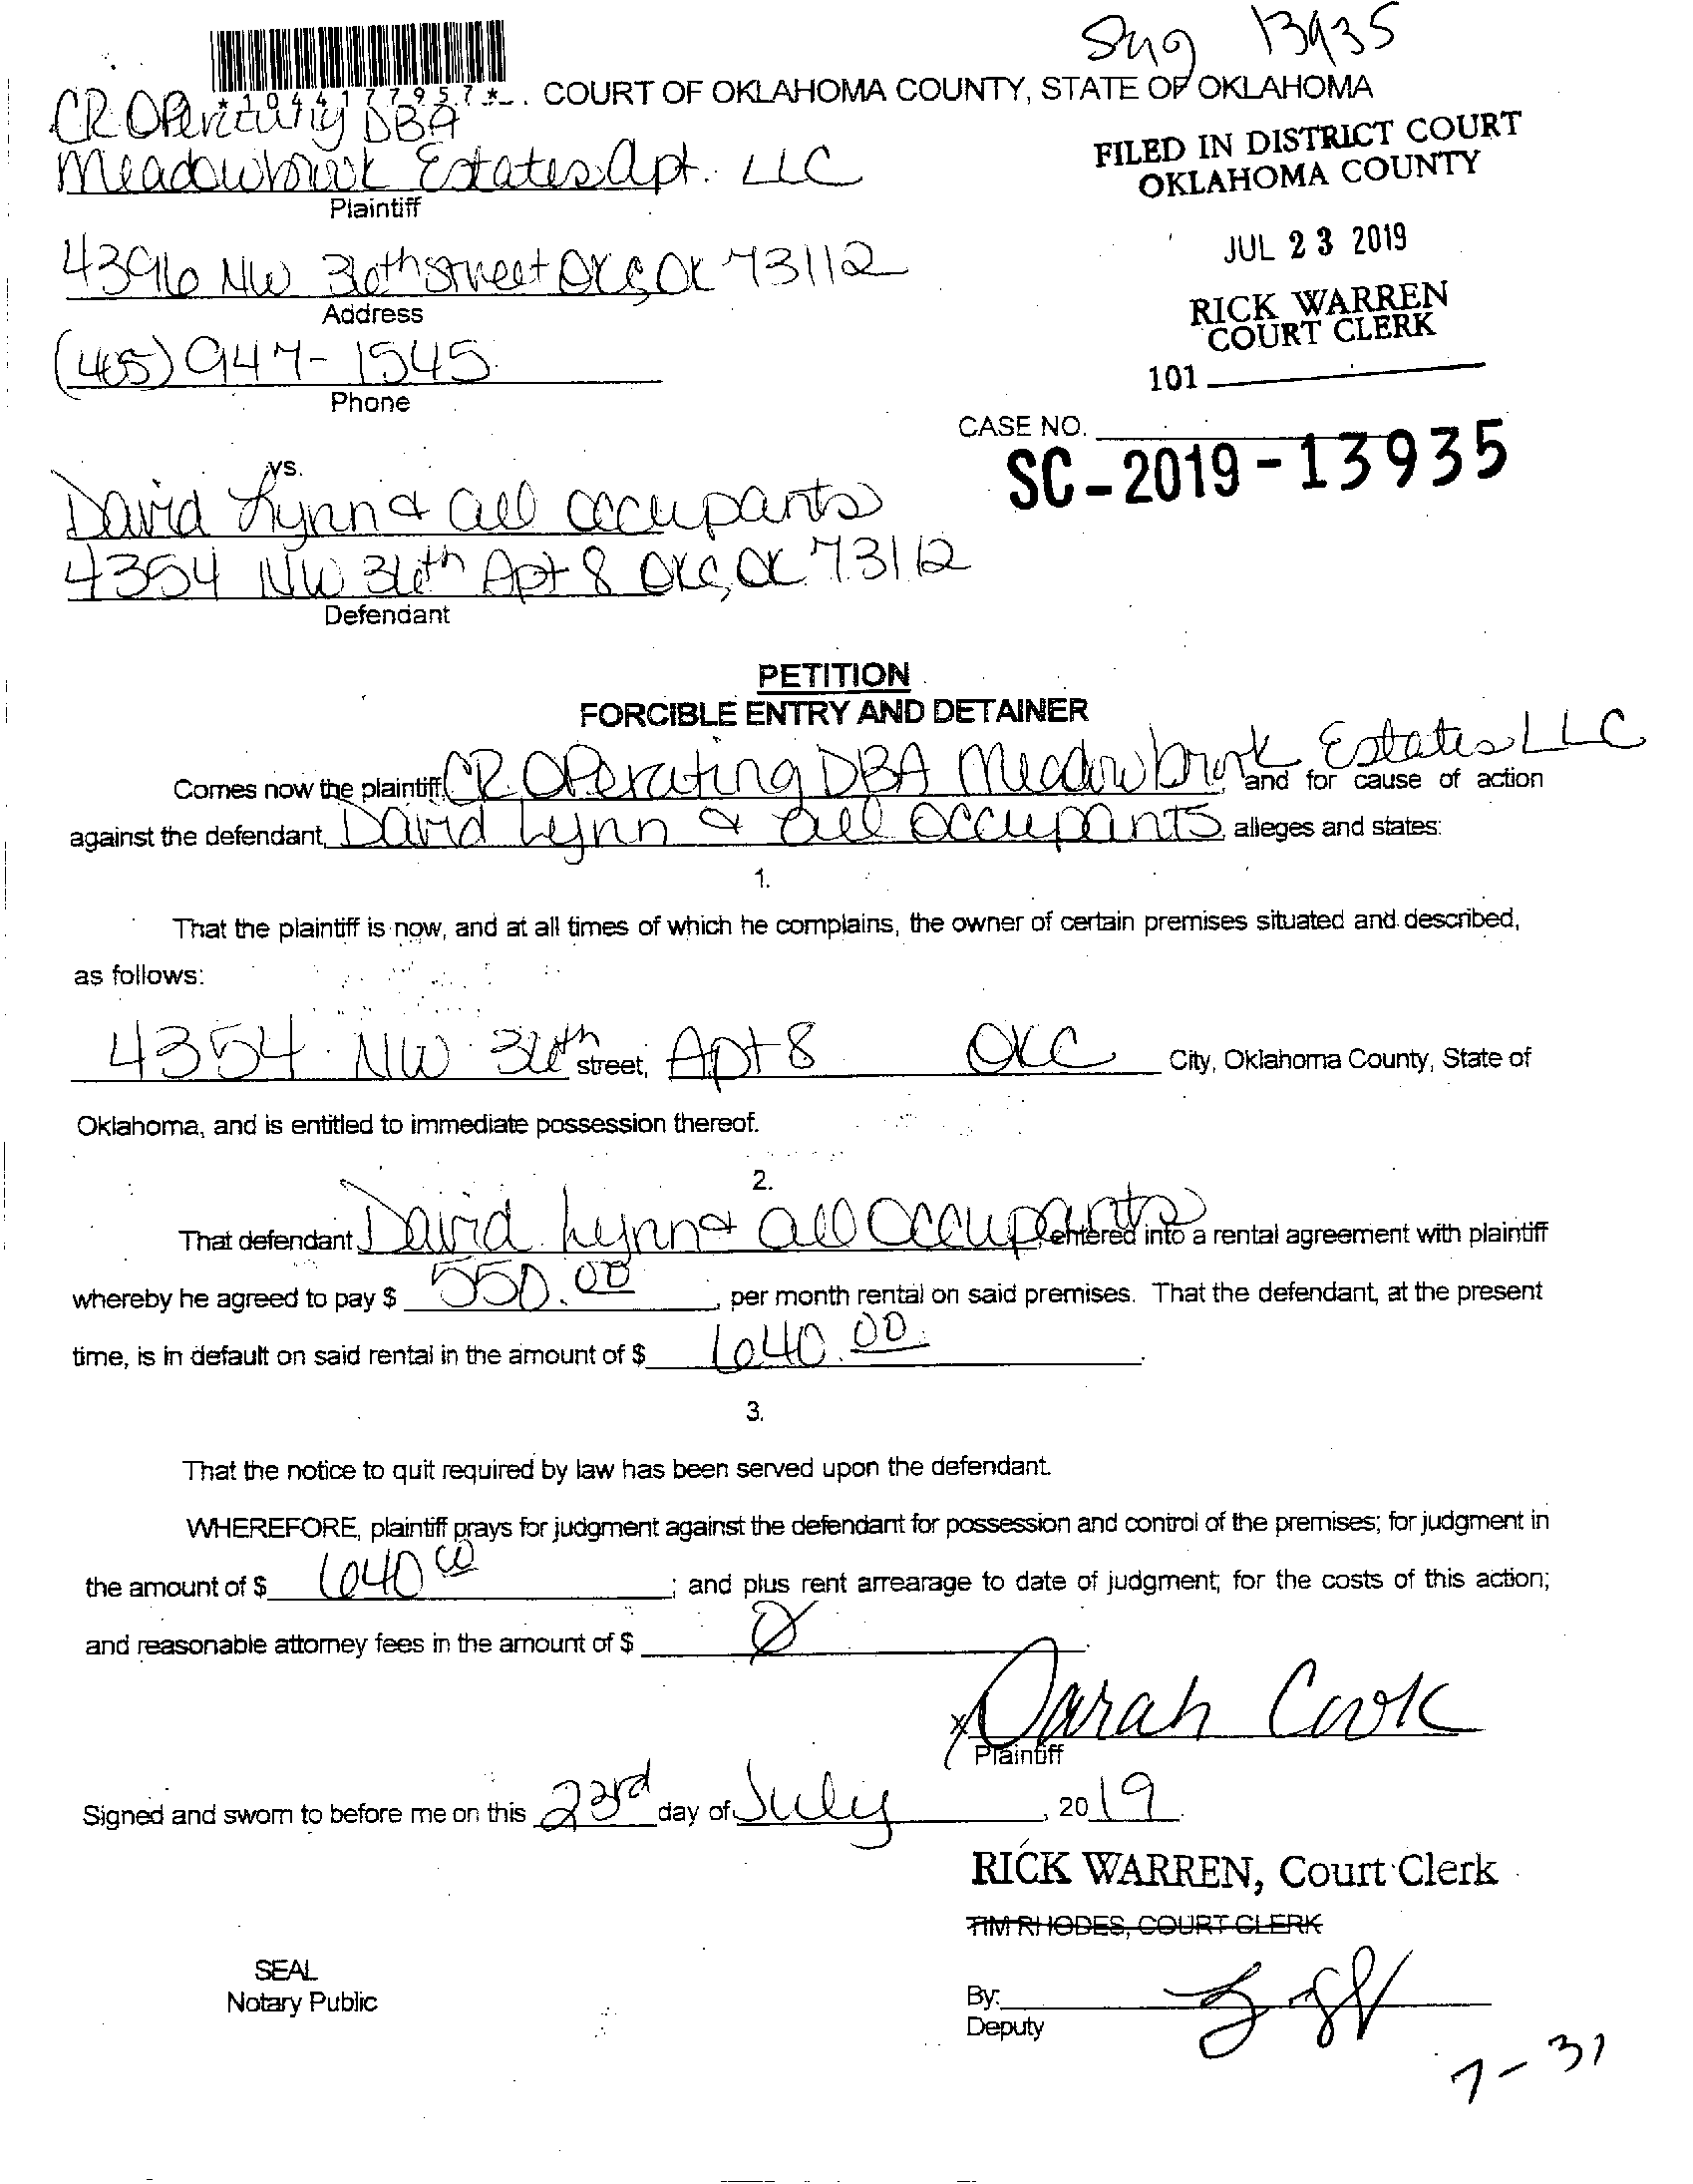 13935
*1044177957*
COURT OF OKLAHOMA COUNTY, STATE OF OKLAHOMA
CR Operating DBA
Meadowbrook Estates Apt. LLC
Plaintiff
FILED IN DISTRICT COURT
OKLAHOMA COUNTY
JUL 23 2019
RICK WARREN
COURT CLERK
101
4396 NW 36th Street OKC, OK 73112
Address
(405) 947-1545
Phone
CASE NO.
SC-2019-13935
vs.
David Lynn & all occupants
4354 NW 36th Apt 8 OKC, OK 73112
Defendant
PETITION
FORCIBLE ENTRY AND DETAINER
Comes now the plaintiff, CR Operating DBA Meadowbrook Estates LLC and for cause of action
against the defendant, David Lynn & all occupants, alleges and states:
1.
That the plaintiff is now, and at all times of which he complains, the owner of certain premises situated and described,
as follows:
4354 NW 36th street, Apt 8 OKC City, Oklahoma County, State of
Oklahoma, and is entitled to immediate possession thereof.
2.
That defendant David Lynn & all Occupants entered into a rental agreement with plaintiff
whereby he agreed to pay $ 550.00, per month rental on said premises. That the defendant, at the present
time, is in default on said rental in the amount of $ 640.00.
3.
That the notice to quit required by law has been served upon the defendant.
WHEREFORE, plaintiff prays for judgment against the defendant for possession and control of the premises; for judgment in
the amount of $ 640 00; and plus rent arrearage to date of judgment; for the costs of this action;
and reasonable attorney fees in the amount of $ 0.
x Sarah Cook
Plaintiff
Signed and sworn to before me on this 23rd day of July, 2019.
RICK WARREN, Court Clerk
TIM RHODES, COURT CLERK
SEAL
Notary Public
By:
Deputy
7-31